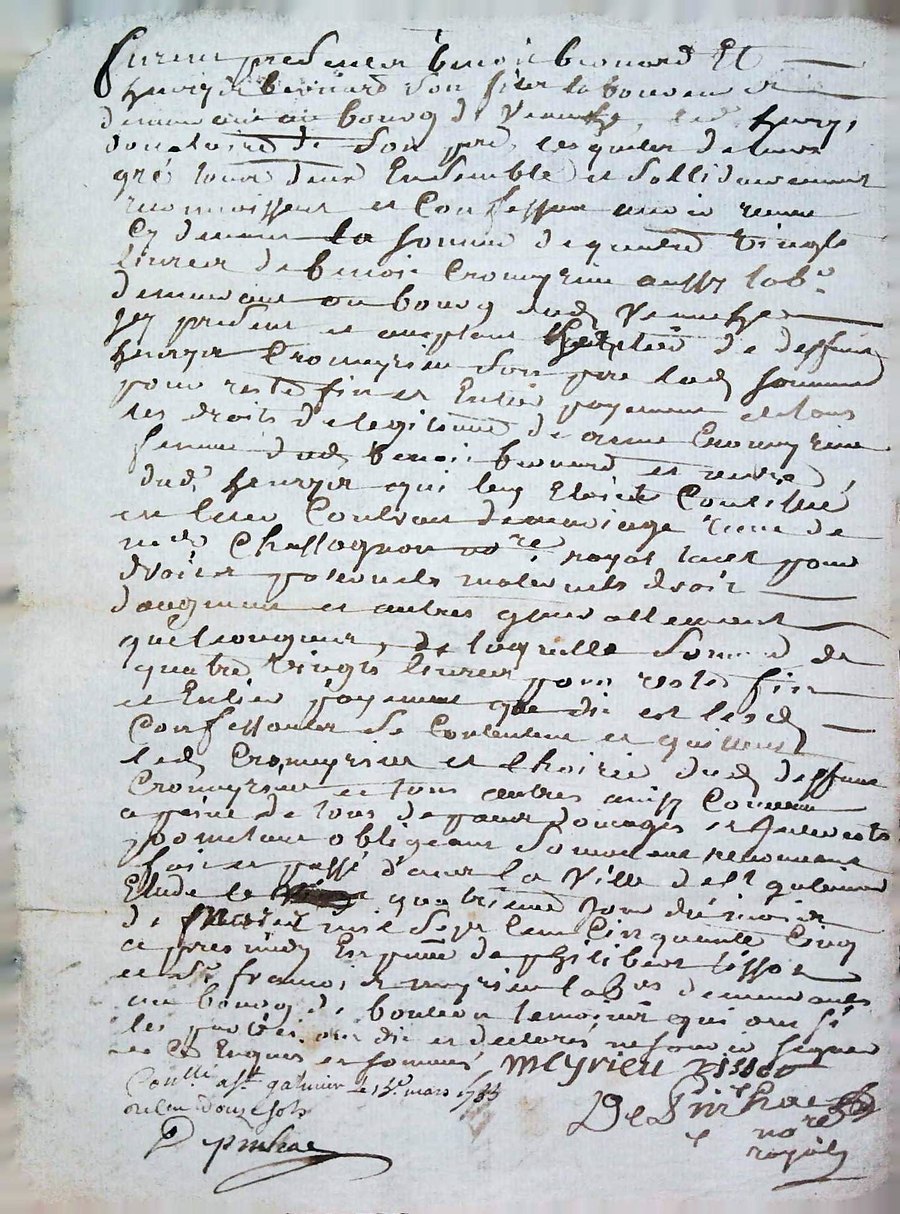 Furent presents benoit beonard Et
henry beonard son fils laboureurs
demeurant au bourg de Veauche, led henry
donataire de son pere lesquels de leurs
gré tous deux Ensemble et sollidairement
reconnoissent et Confessent avoir receu
Cy devant la somme de quatre vingts
livres de benoit Cromeyrieu aussy lab.r
demeurant au bourg dud Veauche
icy present et acceptant heritier de deffunt
henry Cromeyrieu son pere lad somme
pour reste fin et Entier payement de tous
les droits de legitime de Cromeyrieu
femme dud benoit beonard et mere
dud henry qui luy Etoient Constitué
en leur Contrat de mariage receu de
me Chassagnon no.re royal tant pour
droits paternels maternels droit
daugment et autres generallement
quelconques, de laquelle somme de
quatre vingts livres pour reste fin
et Entier payement que dit est lesd
Confessants se Contentent et quittent
led Cromeyrieu et lhoirie dud deffunt
Cromeyrieu et tous autres ainsy Convenu
a peine de tous depens domages et Interests
prometant obligeant soumetant renonceant
fait et passé dans la Ville de st galmier
Etude le quatrieme jour du mois
de mars mil sept Cent Cinquante Cinq
apres midy En pnce de philibert tissot
et sr francois meyrieu lab.rs demeurants
au bourg de temoins qui ont si
les parties ont dit et declarés ne scavoir signer
de Ce Enquis et sommés meyrieu tissot
Con.llé a st galmier le 13e mars 1755
recu douze sols
Depinhac
De Pinhac
no.re
royal